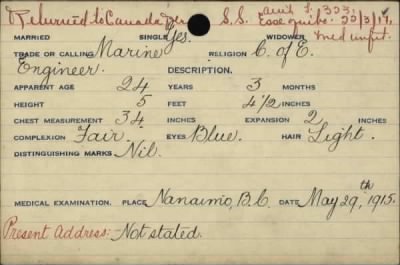 Returned to Canada per S.S. Essequibo. 22/3/17,
Auth F. 1323.
MARRIED SINGLE Yes. WIDOWER Med unfit.
TRADE OR CALLING Marine RELIGION C. of E.
Engineer. DESCRIPTION.
APPARENT AGE 24 YEARS 3 MONTHS
HEIGHT 5 FEET 4 1/2 INCHES
CHEST MEASUREMENT 34 INCHES EXPANSION 2 INCHES
COMPLEXION Fair. EYES Blue. HAIR Light.
DISTINGUISHING MARKS Nil.
MEDICAL EXAMINATION. PLACE Nanaimo, B.C. DATE May 29,th 1915.
Present Address:- Not stated.